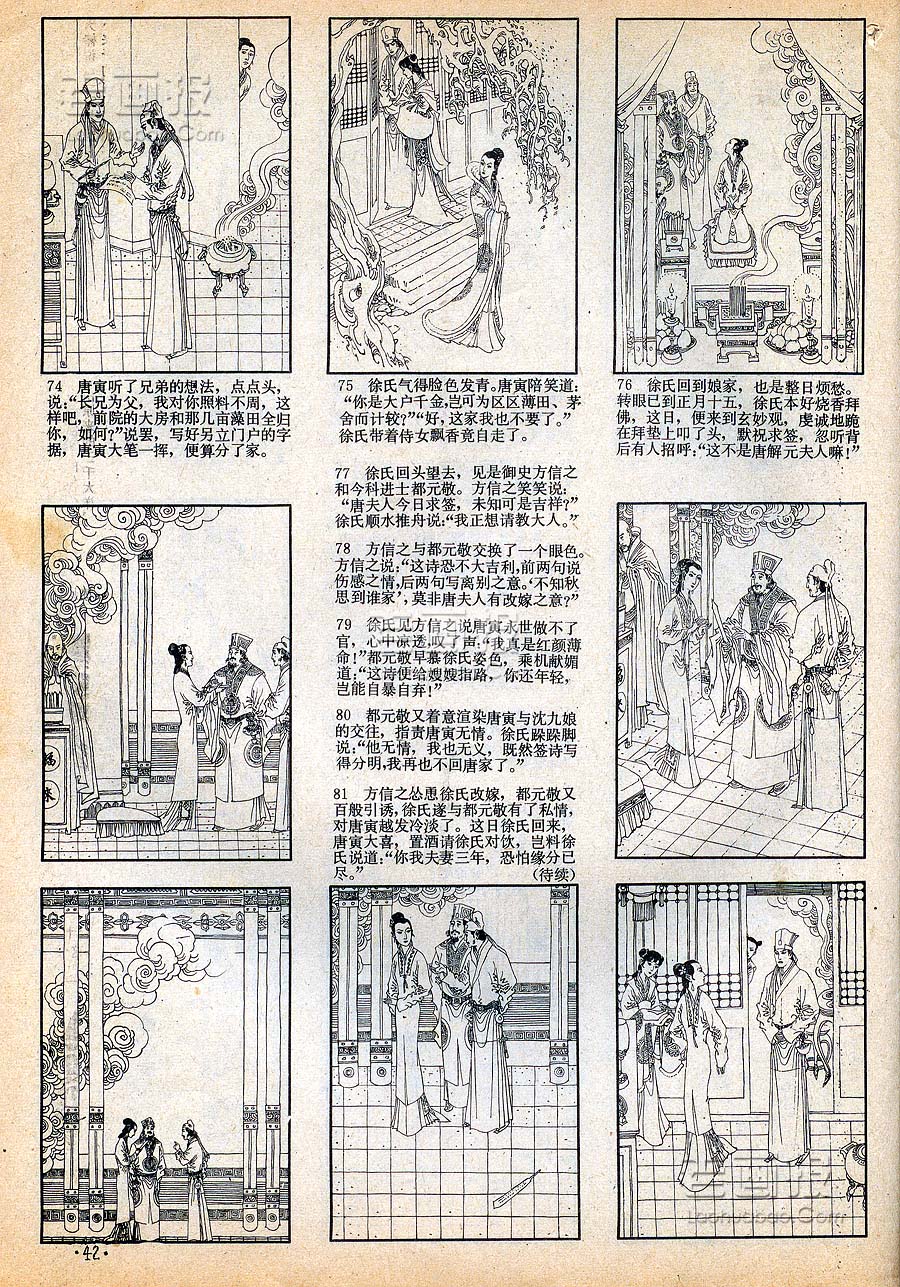 老画报
Laohuabao.Com
74 唐寅听了兄弟的想法，点点头，
说：“长兄为父，我对你照料不周，这
样吧，前院的大房和那几亩藻田全归
你，如何？”说罢，写好另立门户的字
据，唐寅大笔一挥，便算分了家。
75 徐氏气得脸色发青。唐寅陪笑道：
“你是大户千金，岂可为区区薄田、茅
舍而计较？”“好，这家我也不要了。”
徐氏带着侍女飘香竟自走了。
76 徐氏回到娘家，也是整日烦愁。
转眼已到正月十五，徐氏本好烧香拜
佛，这日，便来到玄妙观，虔诚地跪
在拜垫上叩了头，默祝求签，忽听背
后有人招呼：“这不是唐解元夫人嘛！”
77 徐氏回头望去，见是御史方信之
和今科进士都元敬。方信之笑笑说：
“唐夫人今日求签，未知可是吉祥？”
徐氏顺水推舟说：“我正想请教大人。”
78 方信之与都元敬交换了一个眼色。
方信之说：“这诗恐不大吉利，前两句说
伤感之情，后两句写离别之意。‘不知秋
思到谁家’，莫非唐夫人有改嫁之意？”
79 徐氏见方信之说唐寅永世做不了
官，心中凉透，叹了声：“我真是红颜薄
命！”都元敬早慕徐氏姿色，乘机献媚
道：“这诗便给嫂嫂指路，你还年轻，
岂能自暴自弃！”
80 都元敬又着意渲染唐寅与沈九娘
的交往，指责唐寅无情。徐氏跺跺脚
说：“他无情，我也无义，既然签诗写
得分明，我再也不回唐家了。”
81 方信之怂恿徐氏改嫁，都元敬又
百般引诱，徐氏遂与都元敬有了私情，
对唐寅越发冷淡了。这日徐氏回来，
唐寅大喜，置酒请徐氏对饮，岂料徐
氏说道：“你我夫妻三年，恐怕缘分已
尽。” （待续）
老画报
Laohuabao.Com
·42·